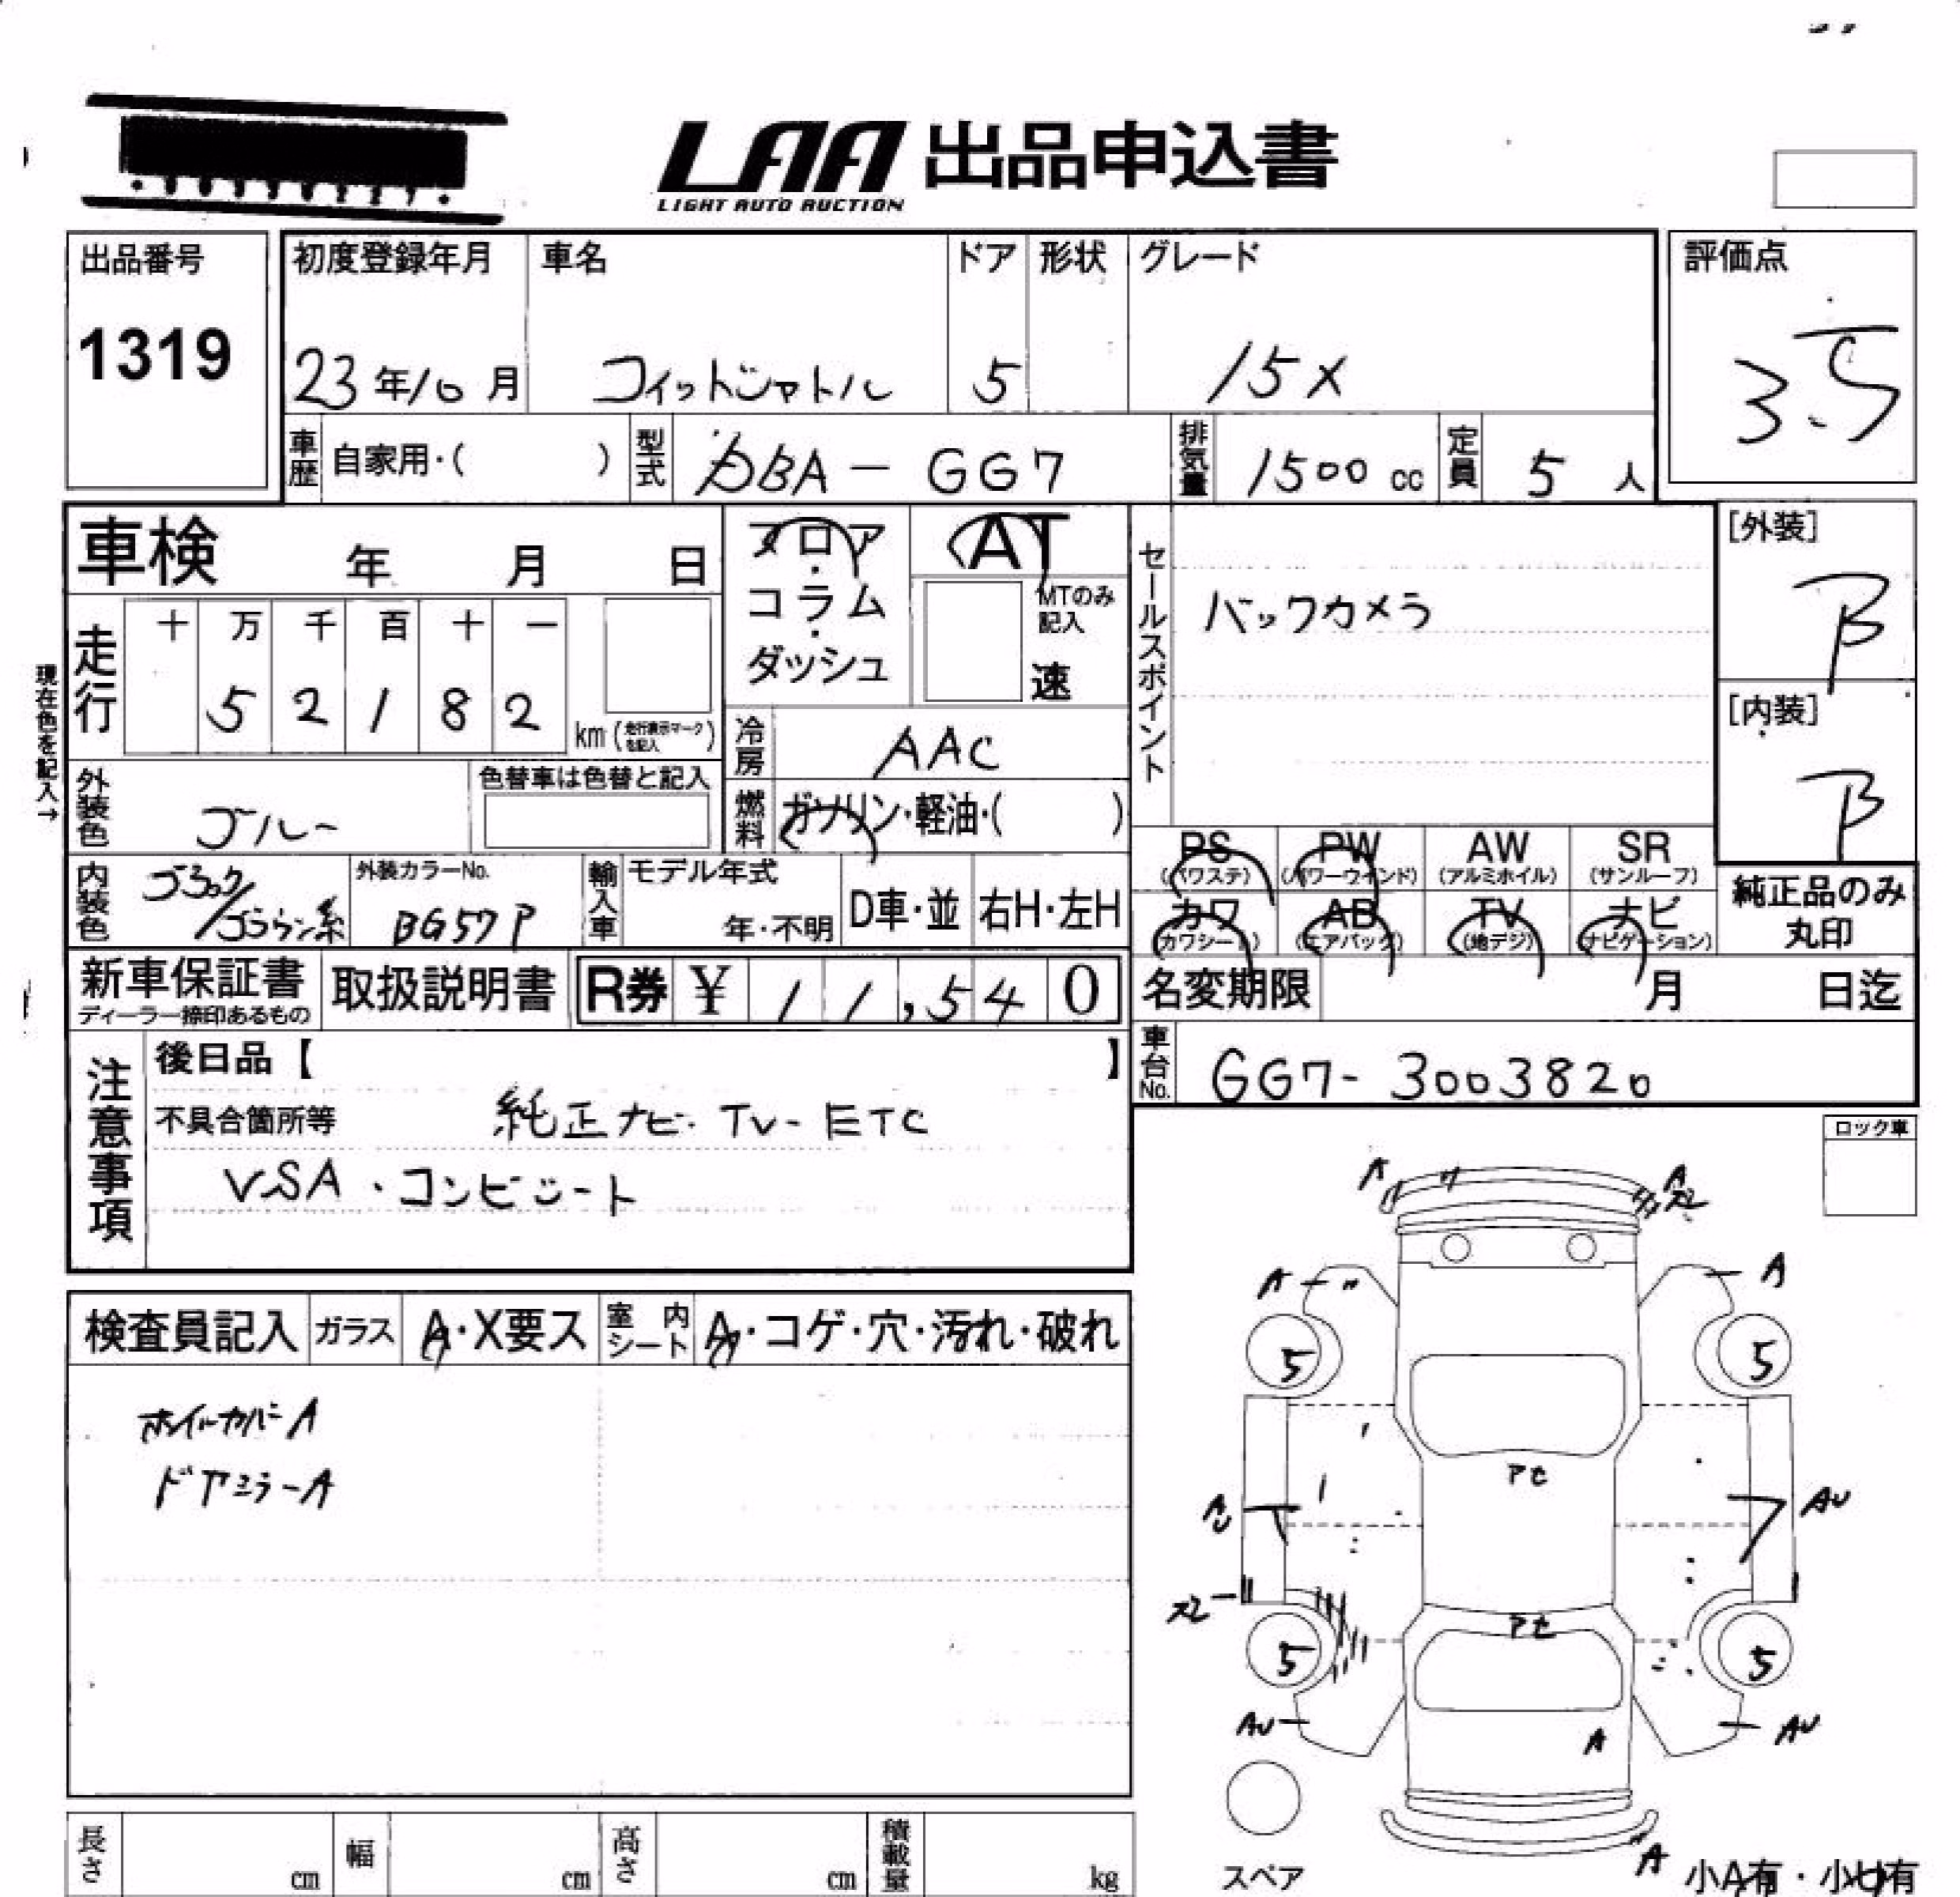 LAA 出品申込書
LIGHT AUTO AUCTION
出品番号
1319
初度登録年月
23年10月
車名
フィットシャトル
ドア
5
形状
グレード
15X
評価点
3.5
車歴 自家用・( )
型式 DBA - GG7
排気量 1500 cc
定員 5 人
車検 年 月 日
フロア・コラム・ダッシュ
AT
MTのみ記入
速
セールスポイント
バックカメラ
[外装]
B
[内装]
B
走行
十 万 千 百 十 一
5 2 1 8 2
km (走行表示マークを記入)
現在色を記入→
冷房 AAC
燃料 ガソリン・軽油・( )
外装色 ブルー
色替車は色替と記入
内装色 ブラック/ブラウン系
外装カラーNo.
BG57P
輸入車 モデル年式
年・不明
D車・並
右H・左H
PS (パワステ)
PW (パワーウインド)
AW (アルミホイル)
SR (サンルーフ)
カワ (カワシート)
AB (エアバック)
TV (地デジ)
ナビ (ナビゲーション)
純正品のみ丸印
新車保証書
ディーラー捺印あるもの
取扱説明書
R券 ¥ 11,540
名変期限 月 日迄
車台No. GG7-3003820
注意事項
後日品【 】
不具合箇所等 純正ナビ・TV・ETC
VSA・コンビシート
ロック車
検査員記入
ガラス A・X要ス
室内シート A・コゲ・穴・汚れ・破れ
ホイルカバーA
ドアミラーA
A
A
ス
A
A
5
5
アセ
AU
AU
ス
アセ
5
5
AU
AU
A
A
スペア
小A有・小U有
長さ cm
幅 cm
高さ cm
積載量 kg